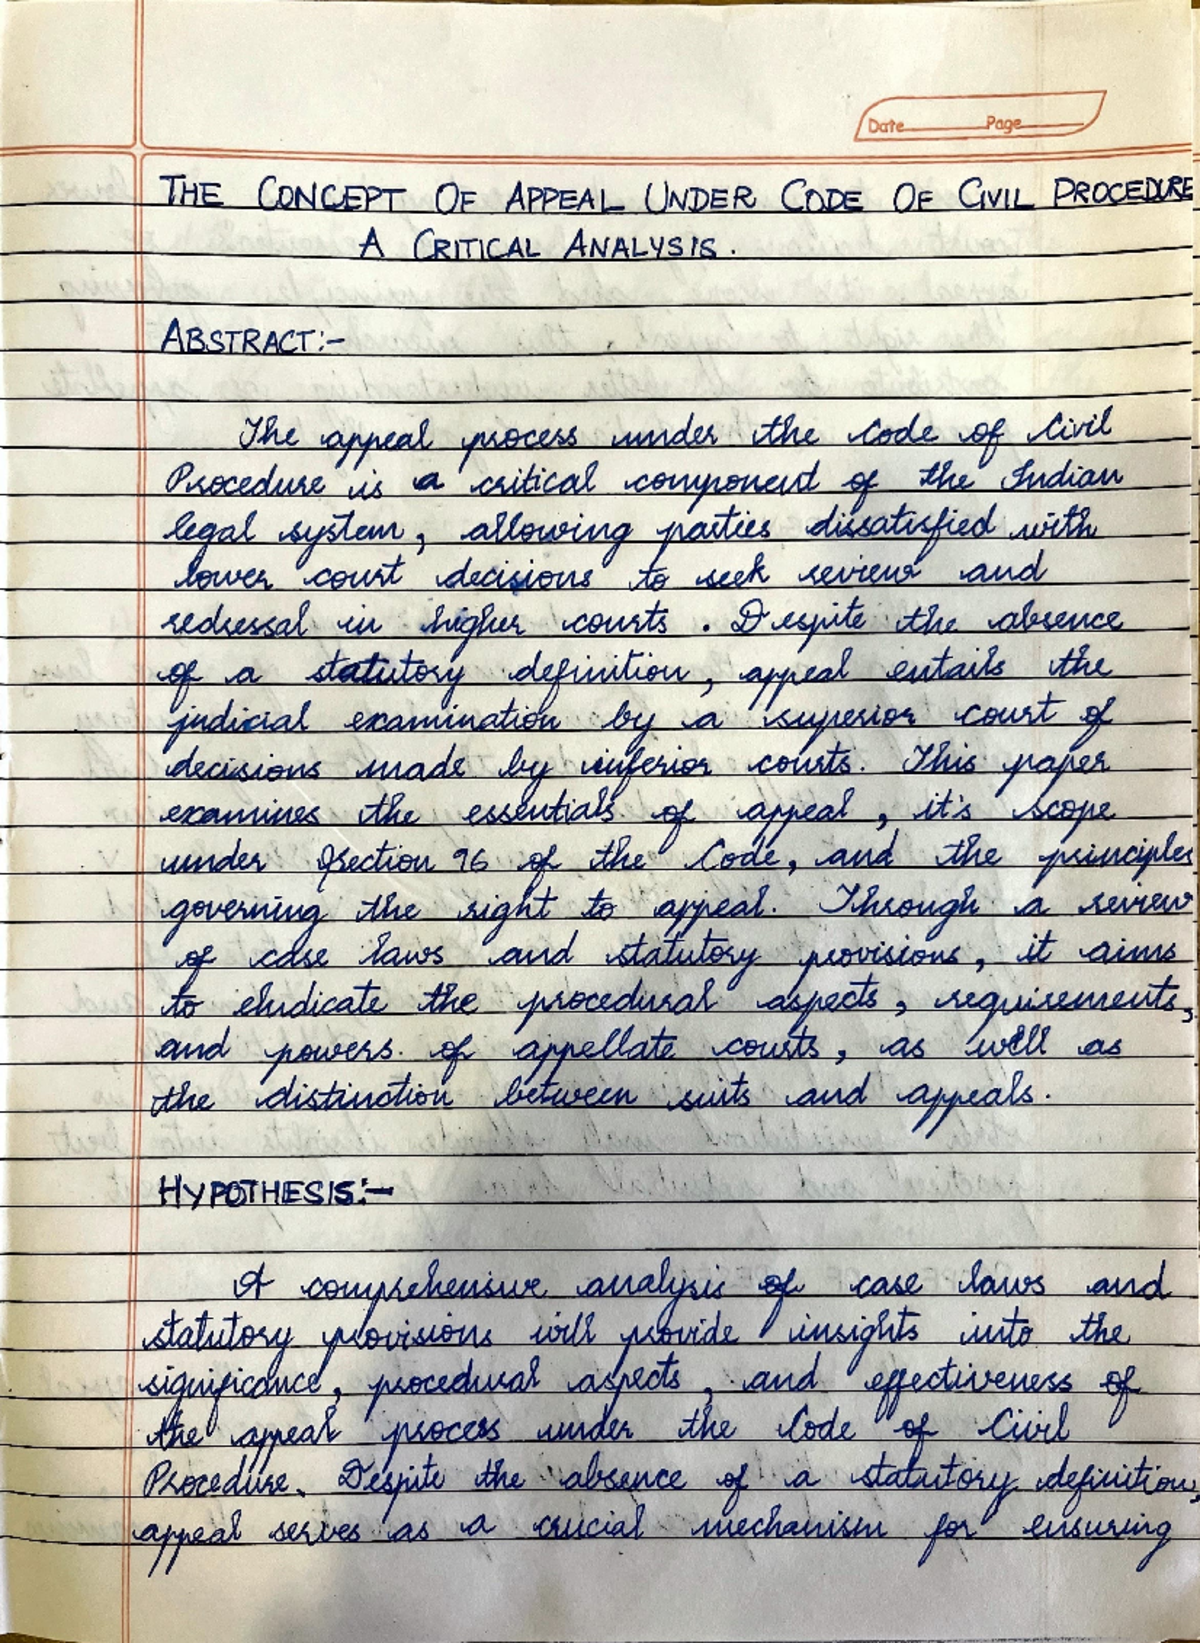 Date Page
THE CONCEPT OF APPEAL UNDER CODE OF CIVIL PROCEDURE
A CRITICAL ANALYSIS.
ABSTRACT:-
The appeal process under the Code of Civil
Procedure is a critical component of the Indian
legal system, allowing parties dissatisfied with
lower court decisions to seek review and
redressal in higher courts. Despite the absence
of a statutory definition, appeal entails the
judicial examination by a superior court of
decisions made by inferior courts. This paper
examines the essentials of appeal, it's scope
under Section 96 of the Code, and the principles
governing the right to appeal. Through a review
of case laws and statutory provisions, it aims
to eludicate the procedural aspects, requirements,
and powers of appellate courts, as well as
the distinction between suits and appeals.
HYPOTHESIS:-
A comprehensive analysis of case laws and
statutory provisions will provide insights into the
significance, procedural aspects, and effectiveness of
the appeal process under the Code of Civil
Procedure. Despite the absence of a statutory definition,
appeal serves as a crucial mechanism for ensuring